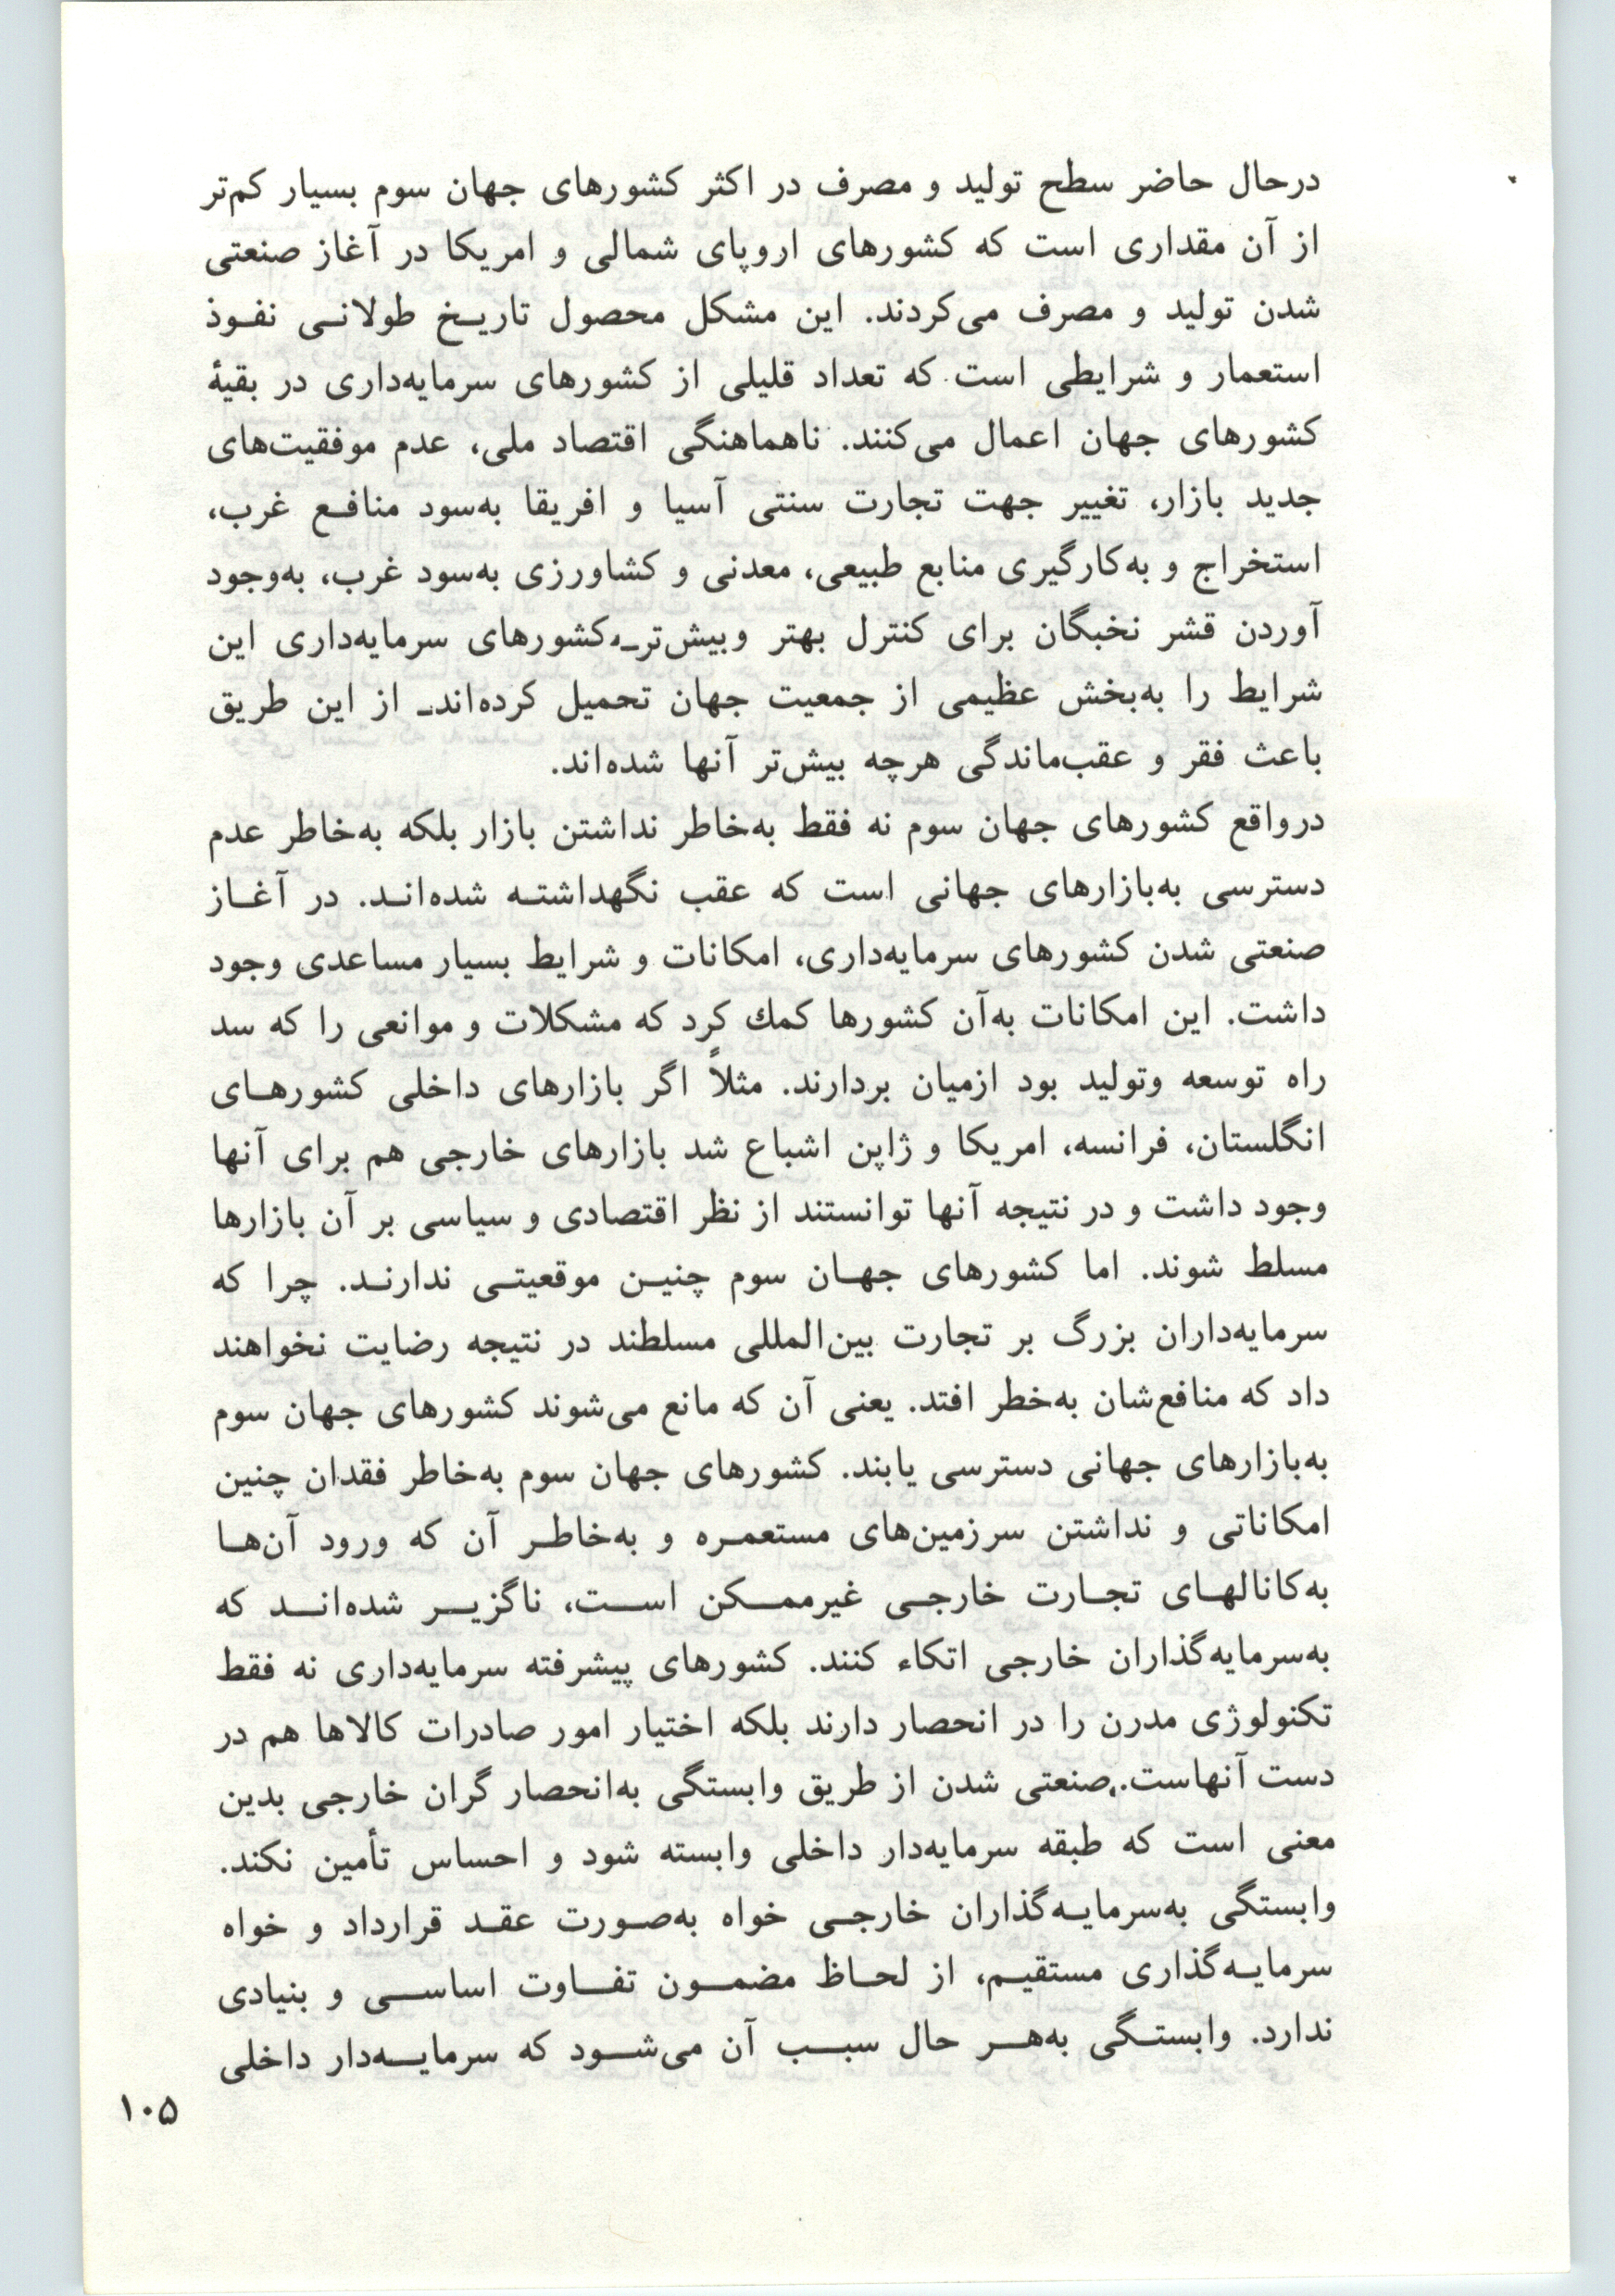 درحال حاضر سطح تولید و مصرف در اکثر کشورهای جهان سوم بسیار کم‌تر
از آن مقداری است که کشورهای اروپای شمالی و امریکا در آغاز صنعتی
شدن تولید و مصرف می‌کردند. این مشکل محصول تاریخ طولانی نفوذ
استعمار و شرایطی است که تعداد قلیلی از کشورهای سرمایه‌داری در بقیهٔ
کشورهای جهان اعمال می‌کنند. ناهماهنگی اقتصاد ملی، عدم موفقیت‌های
جدید بازار، تغییر جهت تجارت سنتی آسیا و افریقا به‌سود منافع غرب،
استخراج و به‌کارگیری منابع طبیعی، معدنی و کشاورزی به‌سود غرب، به‌وجود
آوردن قشر نخبگان برای کنترل بهتر وبیش‌تر_کشورهای سرمایه‌داری این
شرایط را به‌بخش عظیمی از جمعیت جهان تحمیل کرده‌اند_ از این طریق
باعث فقر و عقب‌ماندگی هرچه بیش‌تر آنها شده‌اند.
درواقع کشورهای جهان سوم نه فقط به‌خاطر نداشتن بازار بلکه به‌خاطر عدم
دسترسی به‌بازارهای جهانی است که عقب نگهداشته شده‌اند. در آغاز
صنعتی شدن کشورهای سرمایه‌داری، امکانات و شرایط بسیار مساعدی وجود
داشت. این امکانات به‌آن کشورها کمك کرد که مشکلات و موانعی را که سد
راه توسعه وتولید بود ازمیان بردارند. مثلاً اگر بازارهای داخلی کشورهای
انگلستان، فرانسه، امریکا و ژاپن اشباع شد بازارهای خارجی هم برای آنها
وجود داشت و در نتیجه آنها توانستند از نظر اقتصادی و سیاسی بر آن بازارها
مسلط شوند. اما کشورهای جهان سوم چنین موقعیتی ندارند. چرا که
سرمایه‌داران بزرگ بر تجارت بین‌المللی مسلطند در نتیجه رضایت نخواهند
داد که منافع‌شان به‌خطر افتد. یعنی آن که مانع می‌شوند کشورهای جهان سوم
به‌بازارهای جهانی دسترسی یابند. کشورهای جهان سوم به‌خاطر فقدان چنین
امکاناتی و نداشتن سرزمین‌های مستعمره و به‌خاطر آن که ورود آن‌ها
به‌کانالهای تجارت خارجی غیرممکن است، ناگزیر شده‌اند که
به‌سرمایه‌گذاران خارجی اتکاء کنند. کشورهای پیشرفته سرمایه‌داری نه فقط
تکنولوژی مدرن را در انحصار دارند بلکه اختیار امور صادرات کالاها هم در
دست آنهاست. صنعتی شدن از طریق وابستگی به‌انحصار گران خارجی بدین
معنی است که طبقه سرمایه‌دار داخلی وابسته شود و احساس تأمین نکند.
وابستگی به‌سرمایه‌گذاران خارجی خواه به‌صورت عقد قرارداد و خواه
سرمایه‌گذاری مستقیم، از لحاظ مضمون تفاوت اساسی و بنیادی
ندارد. وابستگی به‌هر حال سبب آن می‌شود که سرمایه‌دار داخلی
۱۰۵